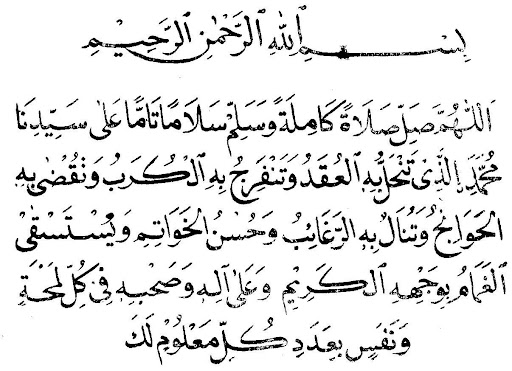 بِسْمِ اللهِ الرَّحْمٰنِ الرَّحِيْمِ
اَللّٰهُمَّ صَلِّ صَلَاةً كَامِلَةً وَسَلِّمْ سَلَامًا تَامًّا عَلٰى سَيِّدِنَا
مُحَمَّدِ الَّذِيْ تَنْحَلُّ بِهِ الْعُقَدُ وَتَنْفَرِجُ بِهِ الْكُرَبُ وَتُقْضٰى بِهِ
الْحَوَائِجُ وَتُنَالُ بِهِ الرَّغَائِبُ وَحُسْنُ الْخَوَاتِمِ وَيُسْتَسْقَى
الْغَمَامُ بِوَجْهِهِ الْكَرِيْمِ وَعَلٰى آلِهِ وَصَحْبِهِ فِيْ كُلِّ لَمْحَةٍ
وَنَفَسٍ بِعَدَدِ كُلِّ مَعْلُوْمٍ لَكَ